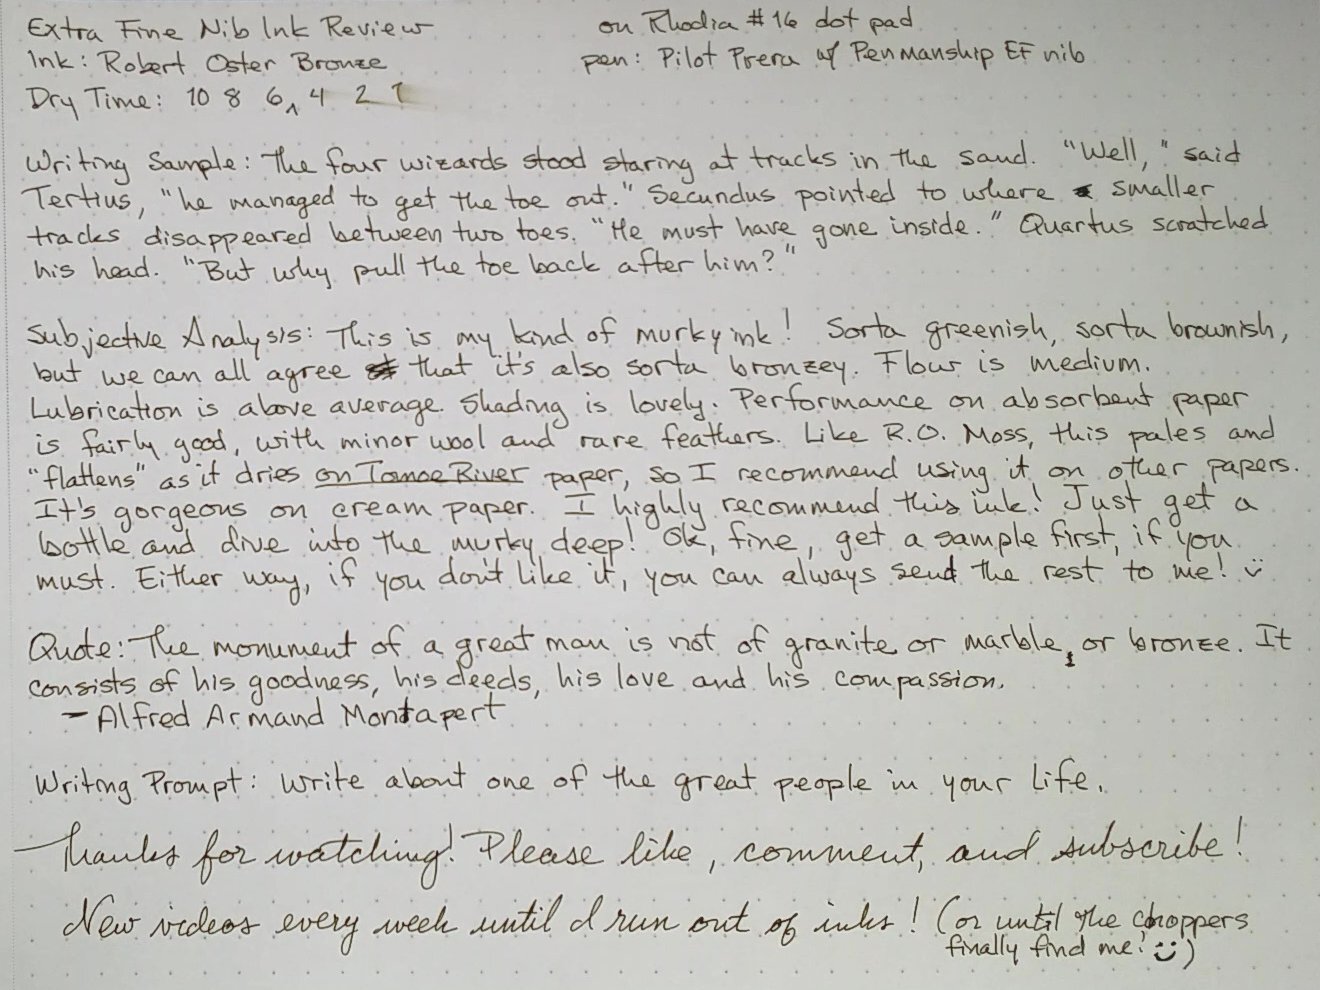 Extra Fine Nib Ink Review
on Rhodia #16 dot pad
Ink: Robert Oster Bronze
pen: Pilot Prera w/ Penmanship EF nib
Dry Time: 10 8 6^ 4 2 1
Writing Sample: The four wizards stood staring at tracks in the sand. "Well," said
Tertius, "he managed to get the toe out." Secundus pointed to where smaller
tracks disappeared between two toes. "He must have gone inside." Quartus scratched
his head. "But why pull the toe back after him?"
Subjective Analysis: This is my kind of murky ink! Sorta greenish, sorta brownish,
but we can all agree that it's also sorta bronzey. Flow is medium.
Lubrication is above average. Shading is lovely. Performance on absorbent paper
is fairly good, with minor wool and rare feathers. Like R.O. Moss, this pales and
"flattens" as it dries on Tomoe River paper, so I recommend using it on other papers.
It's gorgeous on cream paper. I highly recommend this ink! Just get a
bottle and dive into the murky deep! Ok, fine, get a sample first, if you
must. Either way, if you don't like it, you can always send the rest to me! :)
Quote: The monument of a great man is not of granite or marble, or bronze. It
consists of his goodness, his deeds, his love and his compassion.
- Alfred Armand Montapert
Writing Prompt: Write about one of the great people in your life.
Thanks for watching! Please like, comment, and subscribe!
New videos every week until I run out of inks! (or until the choppers
finally find me! :))